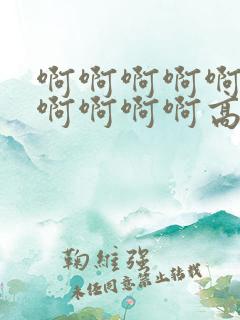 啊啊啊啊啊
啊啊啊啊高
鞠維强
未经同意禁止转载